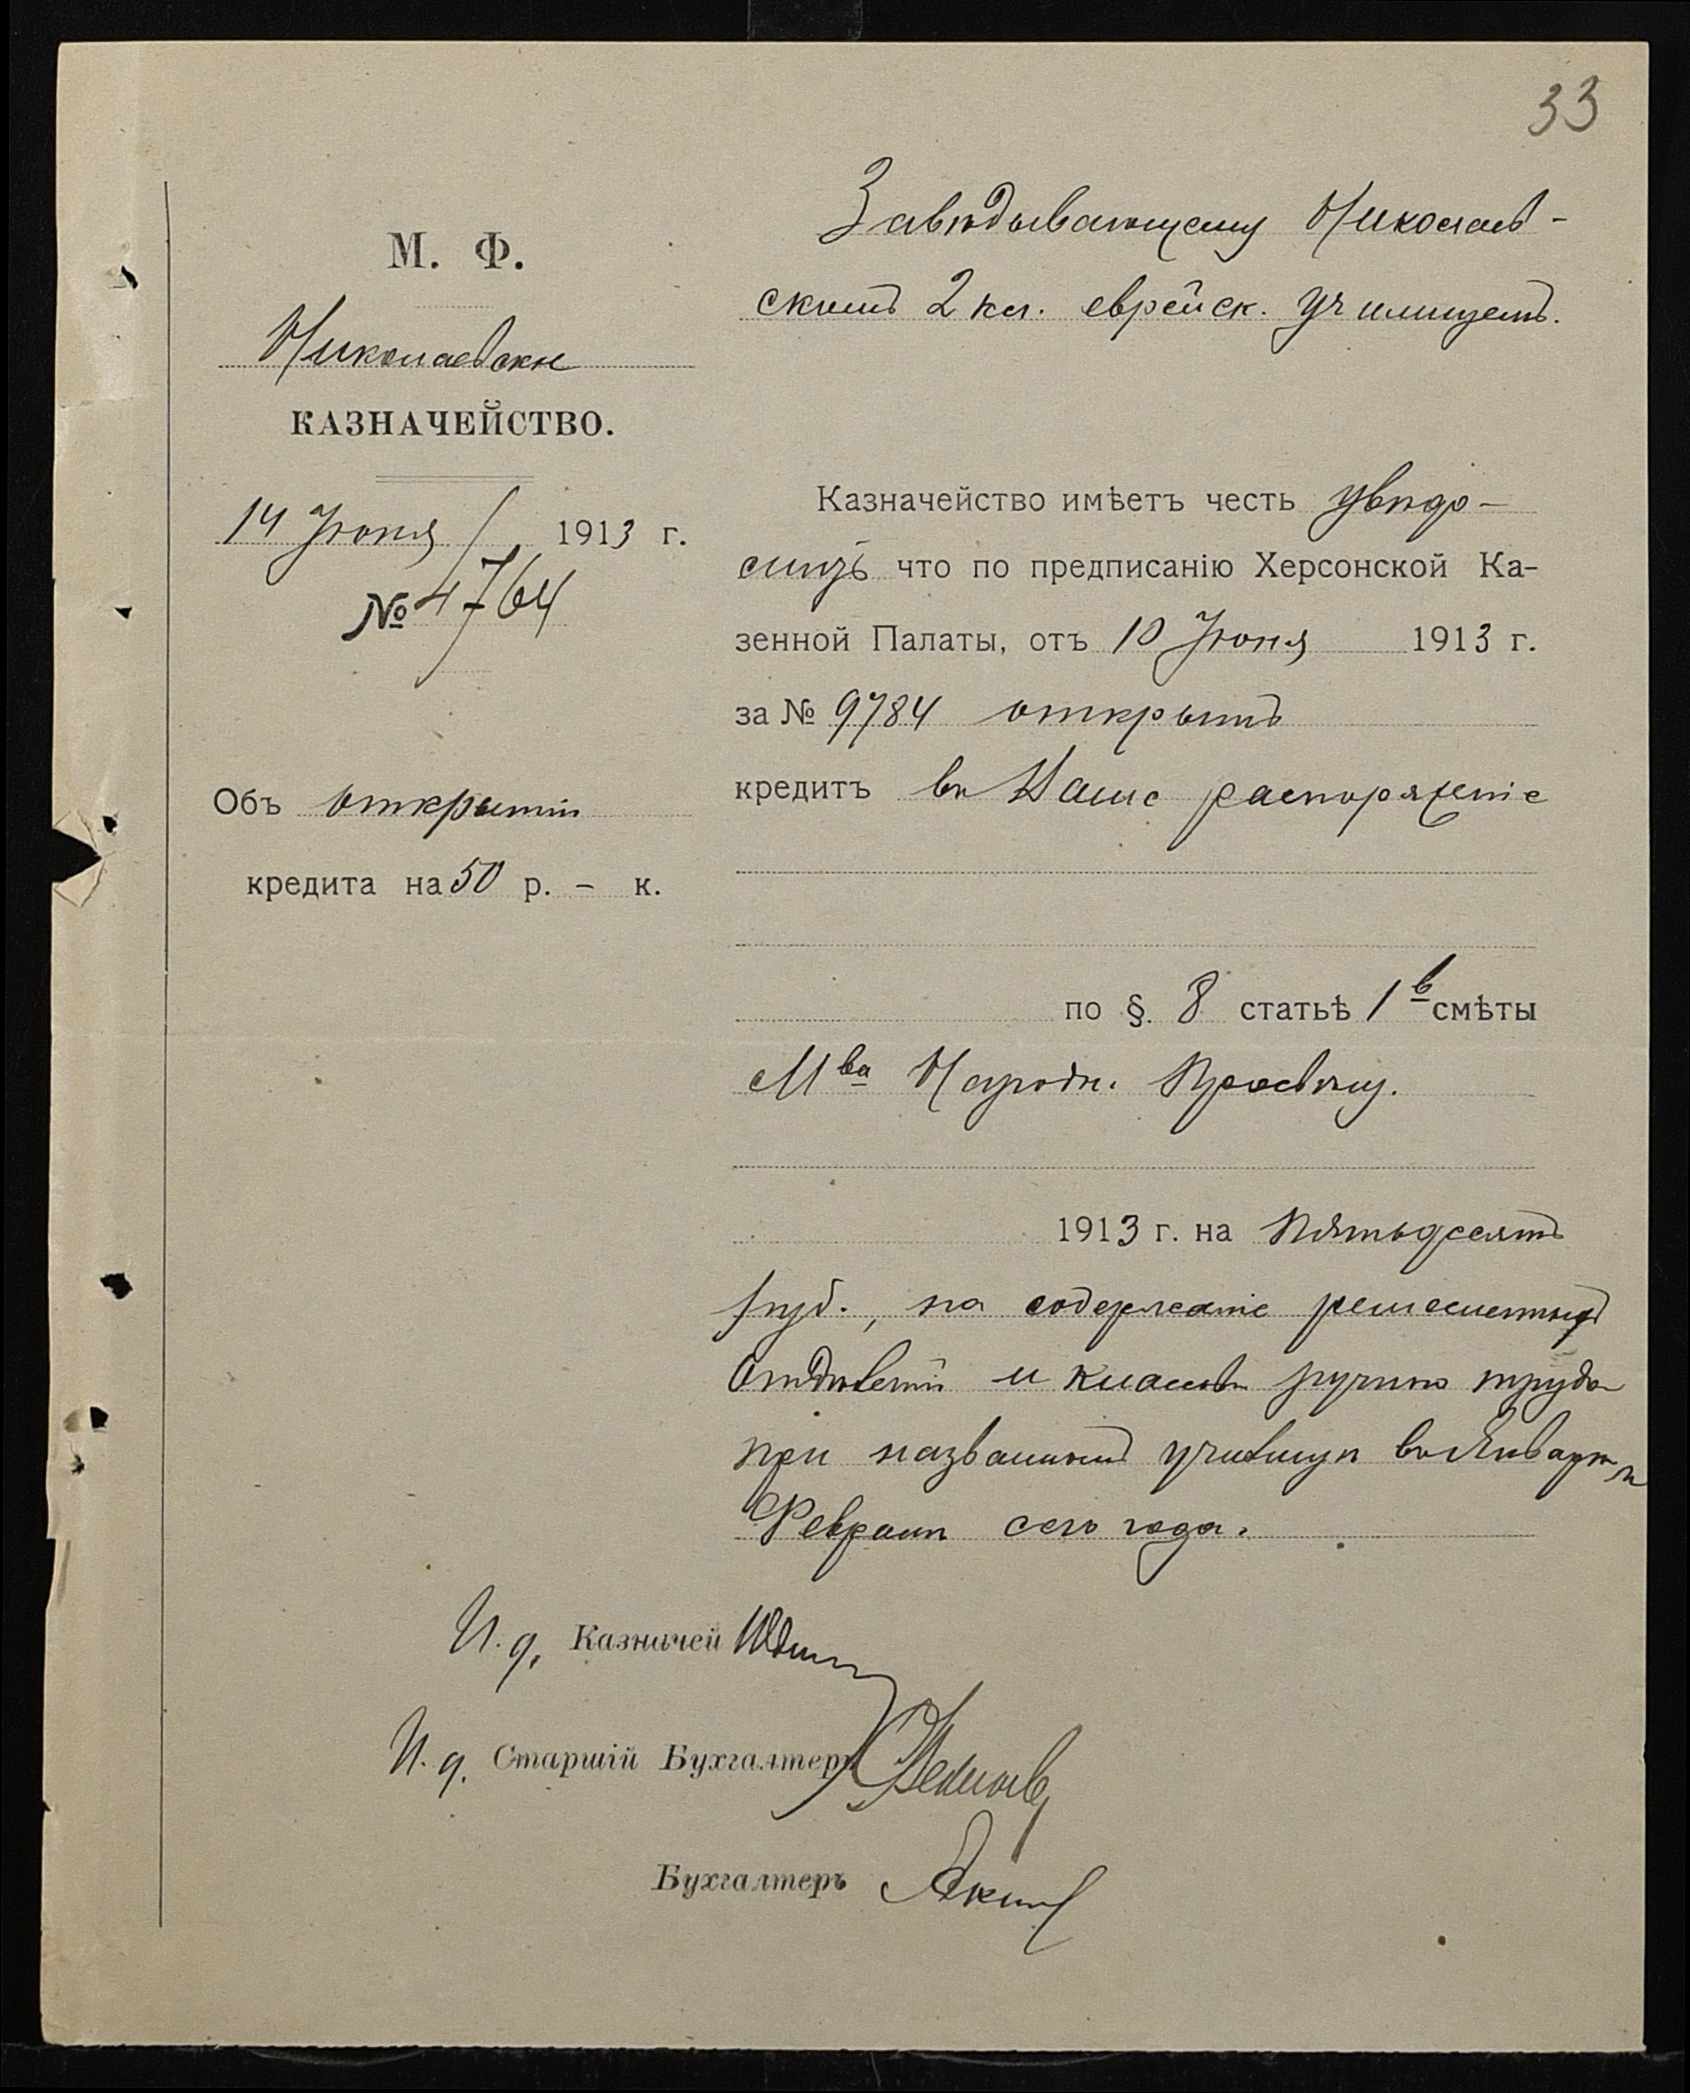 33
М. Ф.
Николаевское
КАЗНАЧЕЙСТВО.
14 Июня 1913 г.
№ 4764
Объ открытіи
кредита на 50 р. – к.
Завѣдывающему Николаев-
скимъ 2 кл. еврейск. училищемъ.
Казначейство имѣетъ честь увѣдо-
мить что по предписанію Херсонской Ка-
зенной Палаты, отъ 10 Июня 1913 г.
за № 9784 открытъ
кредитъ въ Ваше распоряженіе
по §. 8 статьѣ 1 в смѣты
М ва Народн. Просвѣщ.
1913 г. на Пятьдесятъ
руб., на содержаніе ремесленныхъ
отдѣленій и классовъ ручного труда
при названномъ училищѣ въ Январѣ и
Февралѣ сего года.
И. д. Казначей
И. д. Старшій Бухгалтеръ
Бухгалтеръ